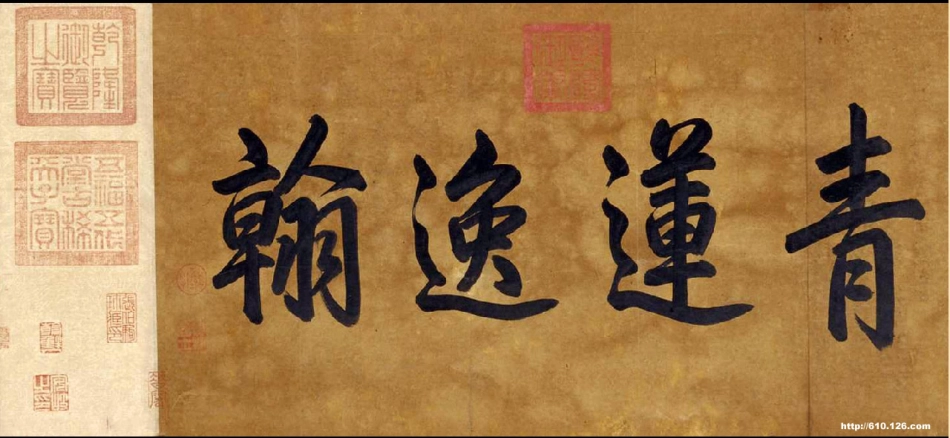 青蓮逸翰
乾隆御覽之寶
五福五代堂古稀天子寶
http://610.126.com